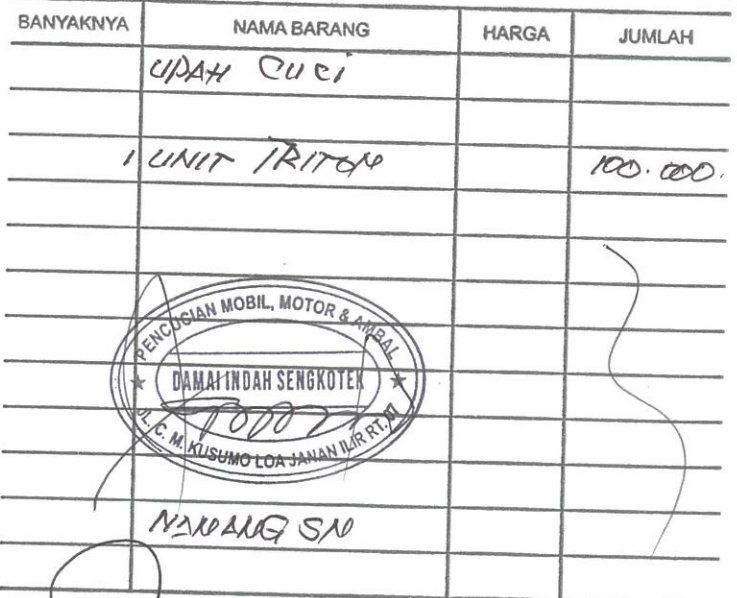 BANYAKNYA NAMA BARANG HARGA JUMLAH
UPAH CUCI
1 UNIT TRITON 100.000.
PENCUCIAN MOBIL, MOTOR & AMBAL
DAMAI INDAH SENGKOTEK
JL. C. M. KUSUMO LOA JANAN ILIR RT. 07
NANANG SN